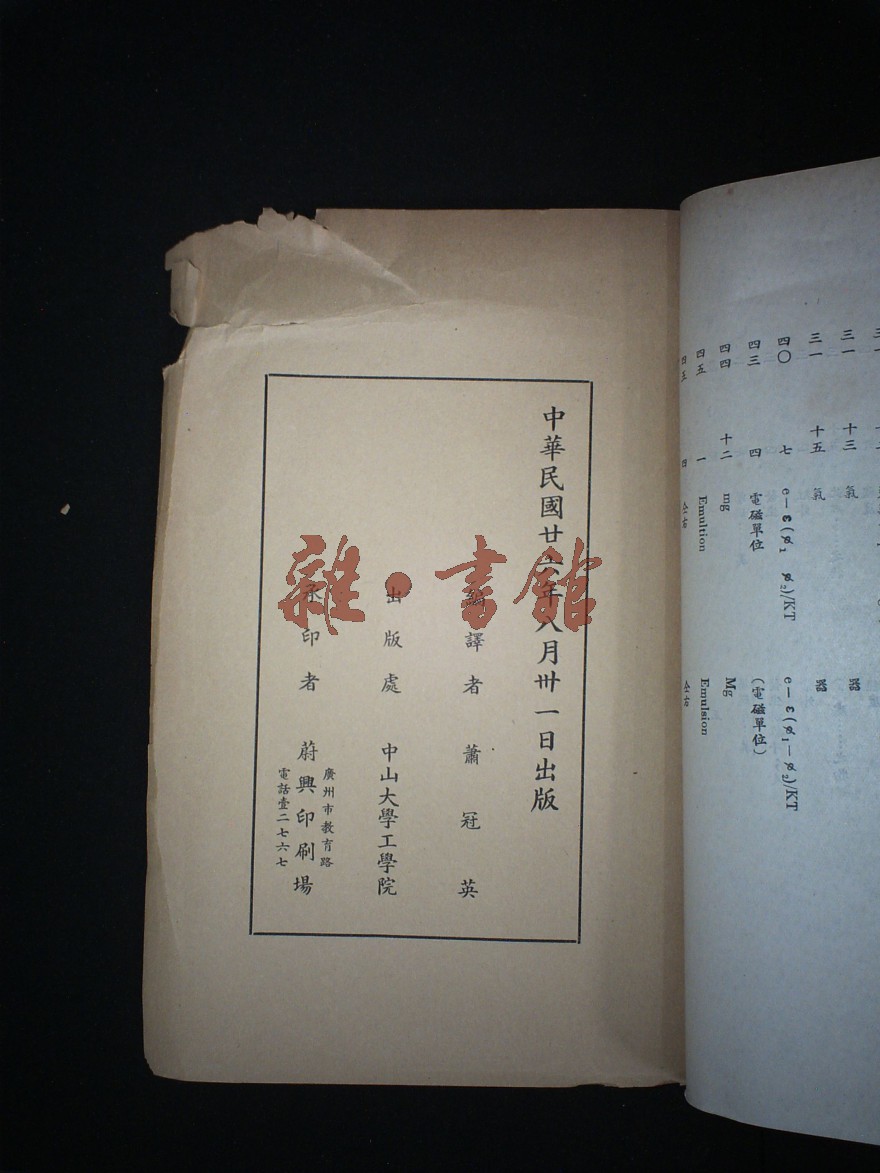 三一 十三 氣 器
三一 十五 氣 器
四〇 七 e—ε(ø₁ ø₂)/KT e—ε(ø₁—ø₂)/KT
四三 四 電磁單位 (電磁單位)
四四 十二 mg Mg
四五 一 Emultion Emulsion
四五 四 仝右 仝右
中華民國廿六年八月卅一日出版
編譯者 蕭冠英
出版處 中山大學工學院
承印者 蔚興印刷場
廣州市教育路
電話壹二七六七
雜·書館